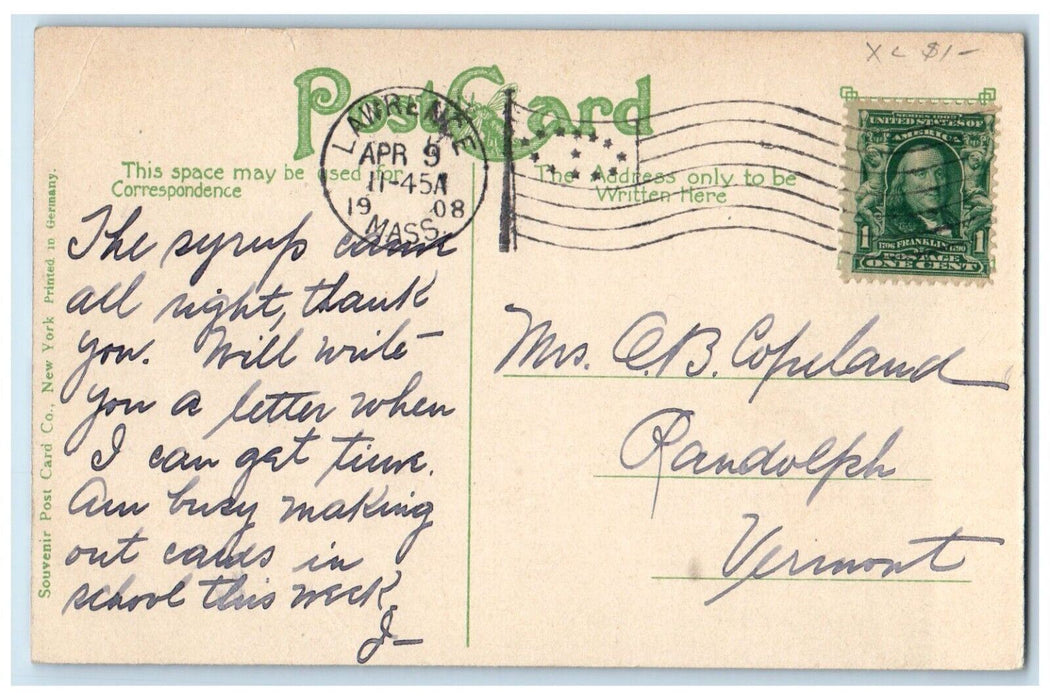 XC $1-
Post Card
This space may be used for
Correspondence
The Address only to be
Written Here
LAWRENCE
APR 9
11-45A
19 08
MASS.
SERIES 1902
UNITED STATES OF
AMERICA
1 1
1706 FRANKLIN 1790
POSTAGE
ONE CENT
The syrup came
all right, thank
you. Will write
you a letter when
I can get time.
Am busy making
out cards in
school this week.
J—
Mrs. C.B. Copeland
Randolph
Vermont
Souvenir Post Card Co., New York Printed in Germany.